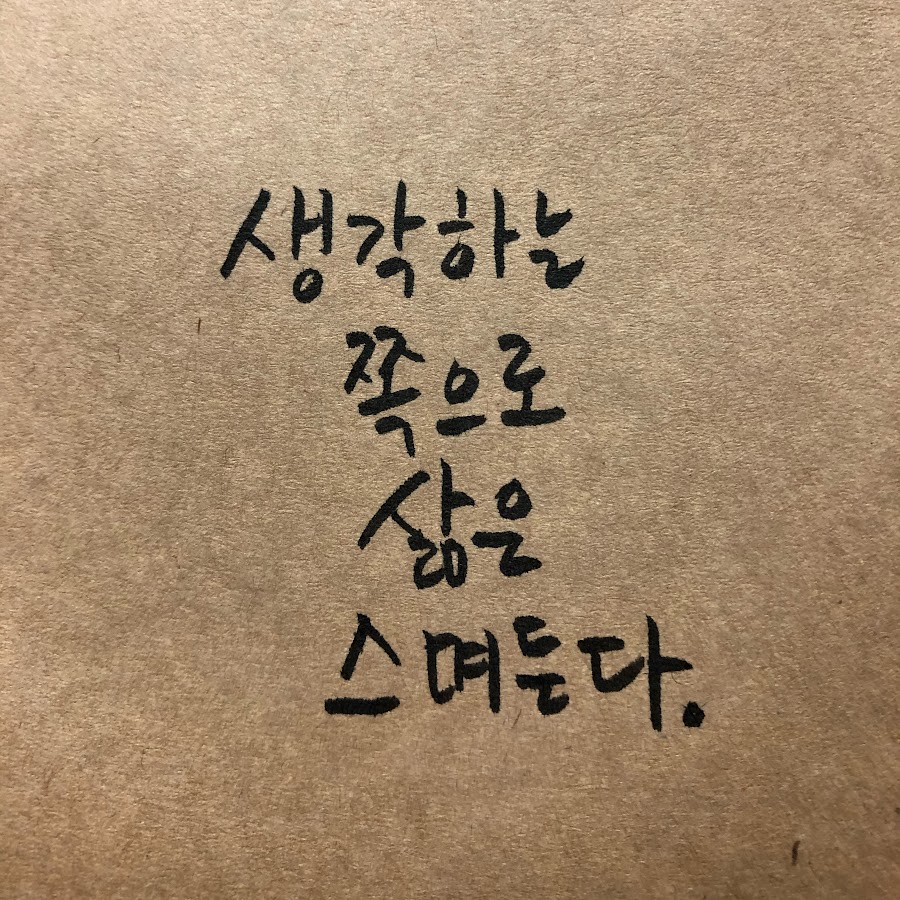 생각하는
쪽으로
삶은
스며든다.